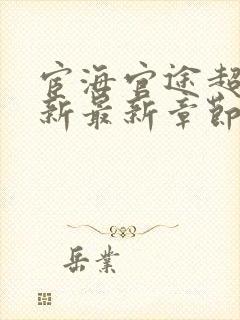 宦海官途超
新最新章节
岳业